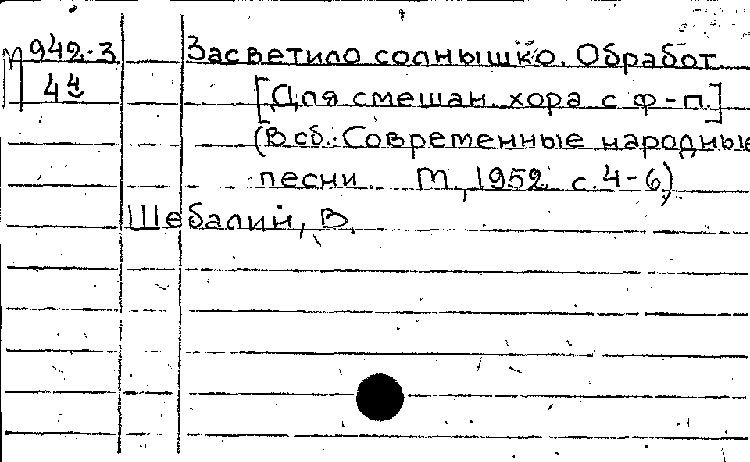 П942-3 Засветило солнышко. Обработ.
44 [Для смешан. хора с ф-п.]
(В сб.: Современные народные
песни М., 1952. с. 4-6)
Шебалин, В.